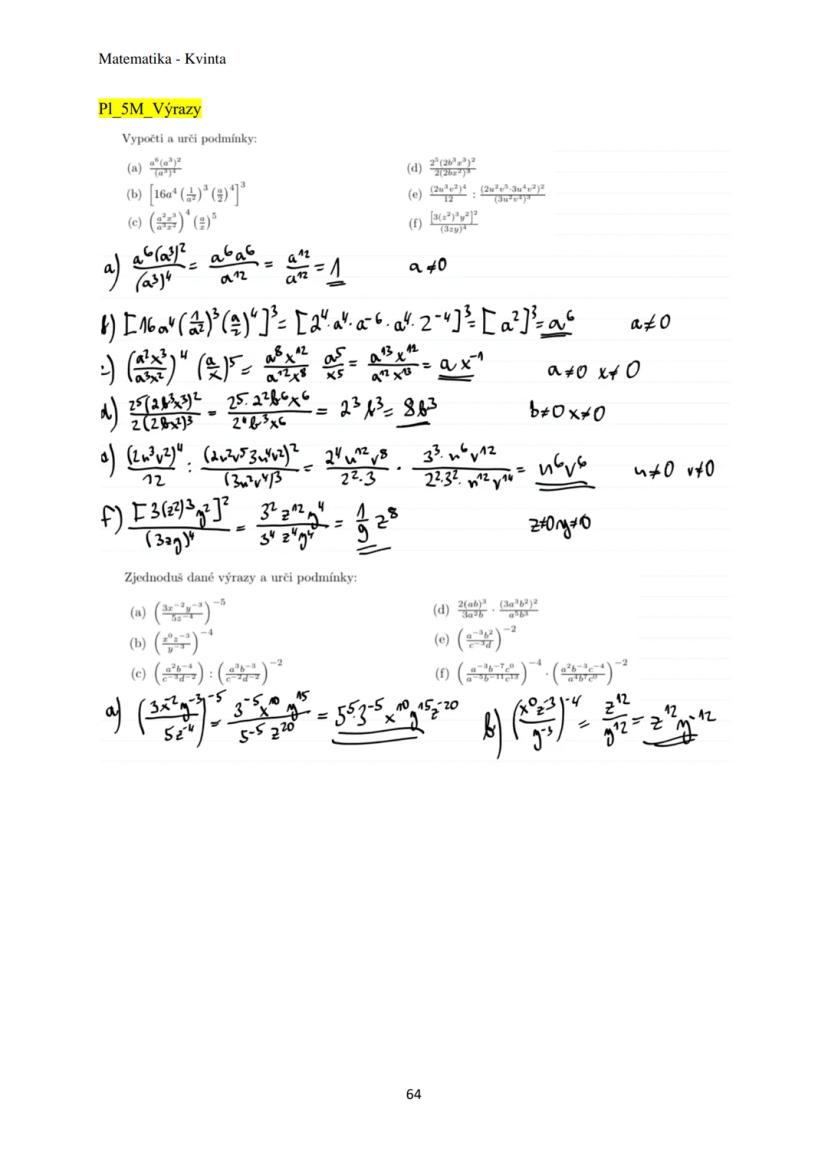 Matematika - Kvinta
Pl_5M_Výrazy
Vypočti a urči podmínky:
(a) a⁶(a³)²/(a³)⁴
(b) [16a⁴(1/a²)³(a/2)⁴]³
(c) (a²x³/a³x²)⁴(a/x)⁵
(d) 2⁵(2b³x³)²/2(2bx²)³
(e) (2u³v²)⁴/12 : (2u²v⁵·3u⁴v²)²/(3u²v⁴)³
(f) [3(z²)³y²]²/(3zy)⁴
a) a⁶(a³)²/(a³)⁴ = a⁶a⁶/a¹² = a¹²/a¹² = 1 a≠0
b) [16a⁴(1/a²)³(a/2)⁴]³ = [2⁴·a⁴·a⁻⁶·a⁴·2⁻⁴]³ = [a²]³ = a⁶ a≠0
c) (a²x³/a³x²)⁴ (a/x)⁵ = a⁸x¹²/a¹²x⁸ a⁵/x⁵ = a¹³x¹²/a¹²x¹³ = ax⁻¹ a≠0 x≠0
d) 2⁵(2b³x³)²/2(2bx²)³ = 2⁵·2²b⁶x⁶/2⁴b³x⁶ = 2³b³ = 8b³ b≠0 x≠0
e) (2u³v²)⁴/12 : (2u²v⁵3u⁴v²)²/(3u²v⁴)³ = 2⁴u¹²v⁸/2²·3 · 3³·u⁶v¹²/2²3²·u¹²v¹⁴ = u⁶v⁶ u≠0 v≠0
f) [3(z²)³y²]²/(3zy)⁴ = 3²z¹²y⁴/3⁴z⁴y⁴ = 1/9 z⁸ z≠0 y≠0
Zjednoduš dané výrazy a urči podmínky:
(a) (3x⁻²y⁻³/5z⁻⁴)⁻⁵
(b) (x⁰z⁻³/y⁻³)⁻⁴
(c) (a²b⁻⁴/c⁻³d⁻²) : (a³b⁻³/c⁻²d⁻²)⁻²
(d) 2(ab)³/3a²b · (3a³b²)²/a⁵b³
(e) (a⁻³b²/c⁻³d)⁻²
(f) (a⁻³b⁻⁷c⁰/a⁻⁵b⁻¹¹c¹³)⁻⁴ · (a²b⁻³c⁻⁴/a⁴b⁷c⁰)⁻²
a) (3x⁻²y⁻³/5z⁻⁴)⁻⁵ = 3⁻⁵x¹⁰y¹⁵/5⁻⁵z²⁰ = 5⁵·3⁻⁵x¹⁰y¹⁵z⁻²⁰ b) (x⁰z⁻³/y⁻³)⁻⁴ = z¹²/y¹² = z¹²y⁻¹²
64